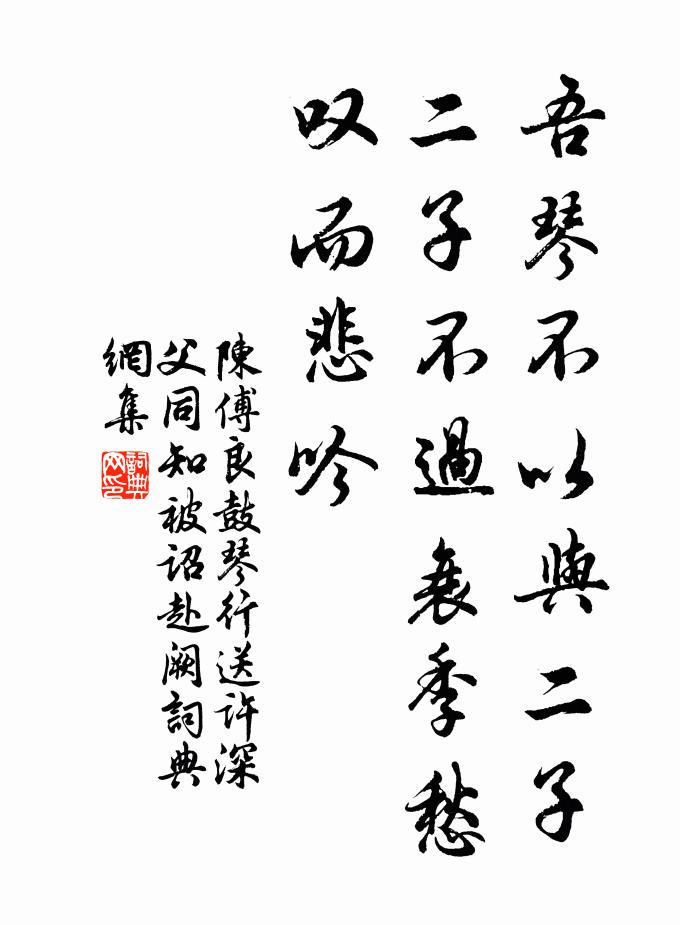 吾琴不以與二子
二子不過衰季愁
叹而悲吟
陳傅良鼓琴行送许深
父同知被詔赴阙詞典
網集
詞典
网印